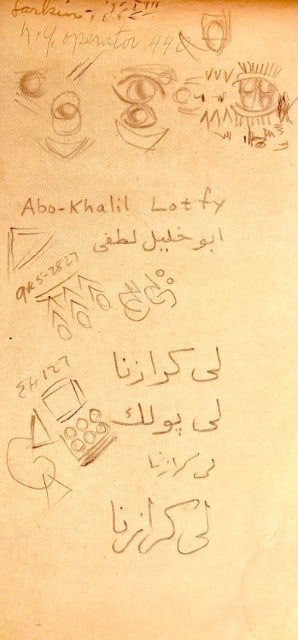 N.Y. operator 440
Abo-Khalil Lotfy
ابو خليل لطفى
GR5-2827
لى كرازنا
لى بولك
لى كرازنا
لى كرازنا